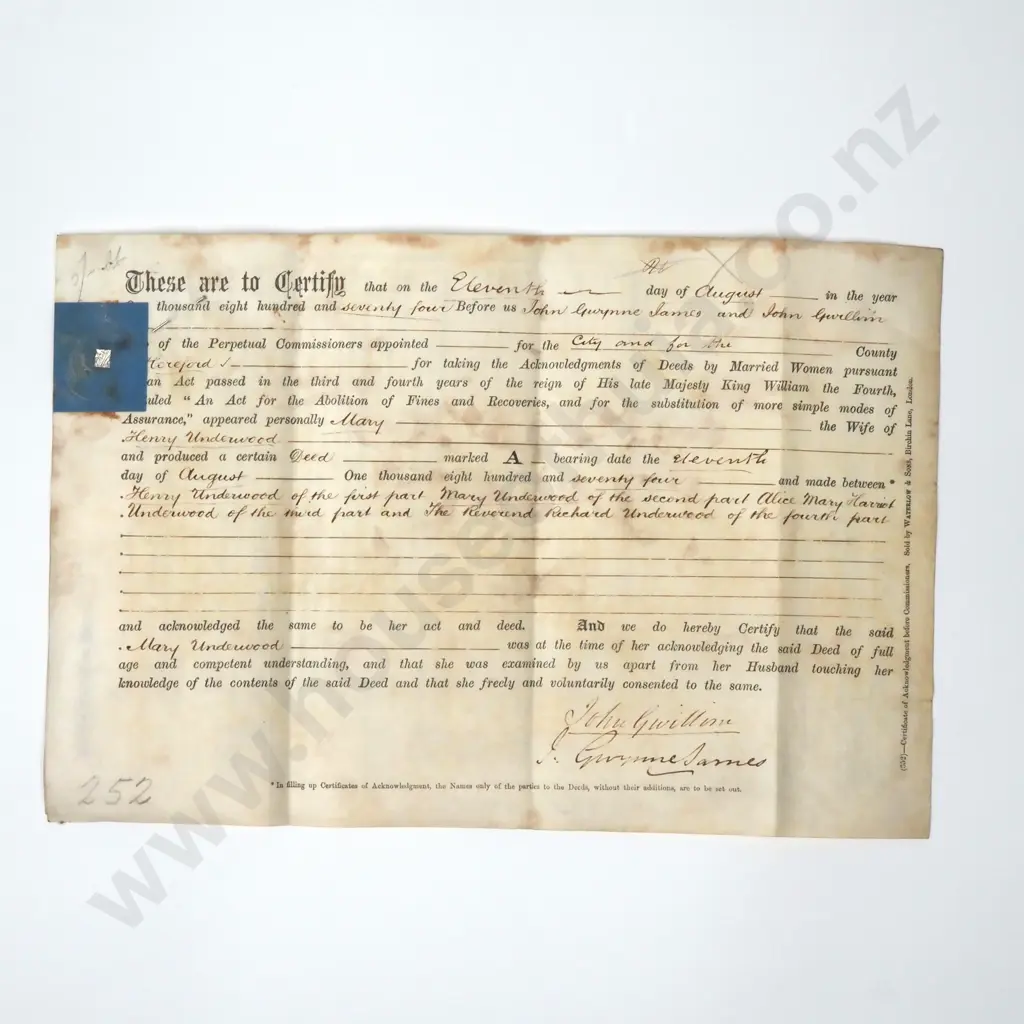 These are to Certify that on the Eleventh day of August in the year
thousand eight hundred and seventy four Before us John Gwynne James and John Gwillim
of the Perpetual Commissioners appointed for the City and for the County
Hereford for taking the Acknowledgments of Deeds by Married Women pursuant
an Act passed in the third and fourth years of the reign of His late Majesty King William the Fourth,
"An Act for the Abolition of Fines and Recoveries, and for the substitution of more simple modes of
Assurance," appeared personally Mary the Wife of
Henry Underwood
and produced a certain Deed marked A bearing date the eleventh
day of August One thousand eight hundred and seventy four and made between *
Henry Underwood of the first part Mary Underwood of the second part Alice Mary Harriot
Underwood of the third part and The Reverend Richard Underwood of the fourth part
and acknowledged the same to be her act and deed. And we do hereby Certify that the said
Mary Underwood was at the time of her acknowledging the said Deed of full
age and competent understanding, and that she was examined by us apart from her Husband touching her
knowledge of the contents of the said Deed and that she freely and voluntarily consented to the same.
John Gwillim
J. Gwynne James
* In filling up Certificates of Acknowledgment, the Names only of the parties to the Deeds, without their additions, are to be set out.
252
(252)—Certificate of Acknowledgment before Commissioners. Sold by WATERLOW & SONS, Birchin Lane, London.